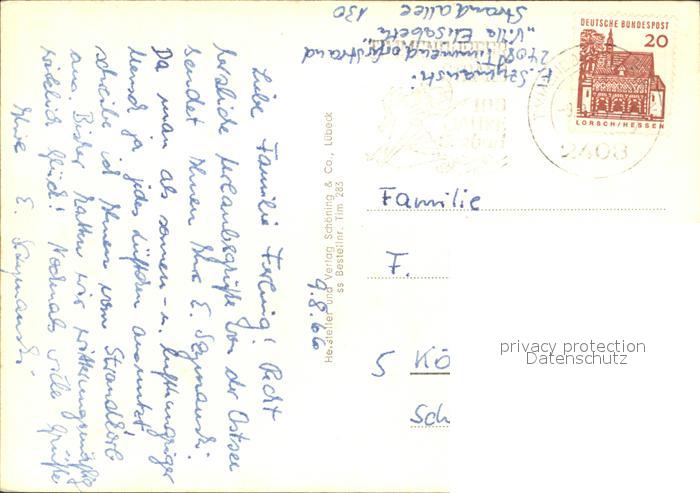 F. Szymanski
2408 Timmendorferstrand
"Villa Elisabeth"
Strandallee 130
DEUTSCHE BUNDESPOST
20
LORSCH/HESSEN
2408
9.8.66
Liebe Familie
Recht
herzliche Urlaubsgrüße von der Ostsee
sendet Ihnen Ihre E. Szymanski.
Da man als sonnen- u. lufthungriger
Mensch ja jedes Lüftchen ausnutzt
schreibe ich Ihnen vom Strandkorb
aus. Bisher hatten wir witterungsmäßig
wirklich Glück! Nochmals viele Grüße
Ihre E. Szymanski.
Hersteller und Verlag Schöning & Co., Lübeck
ss Bestellnr. Tim 283
Familie
F.
5 KÖ
Sch
privacy protection
Datenschutz